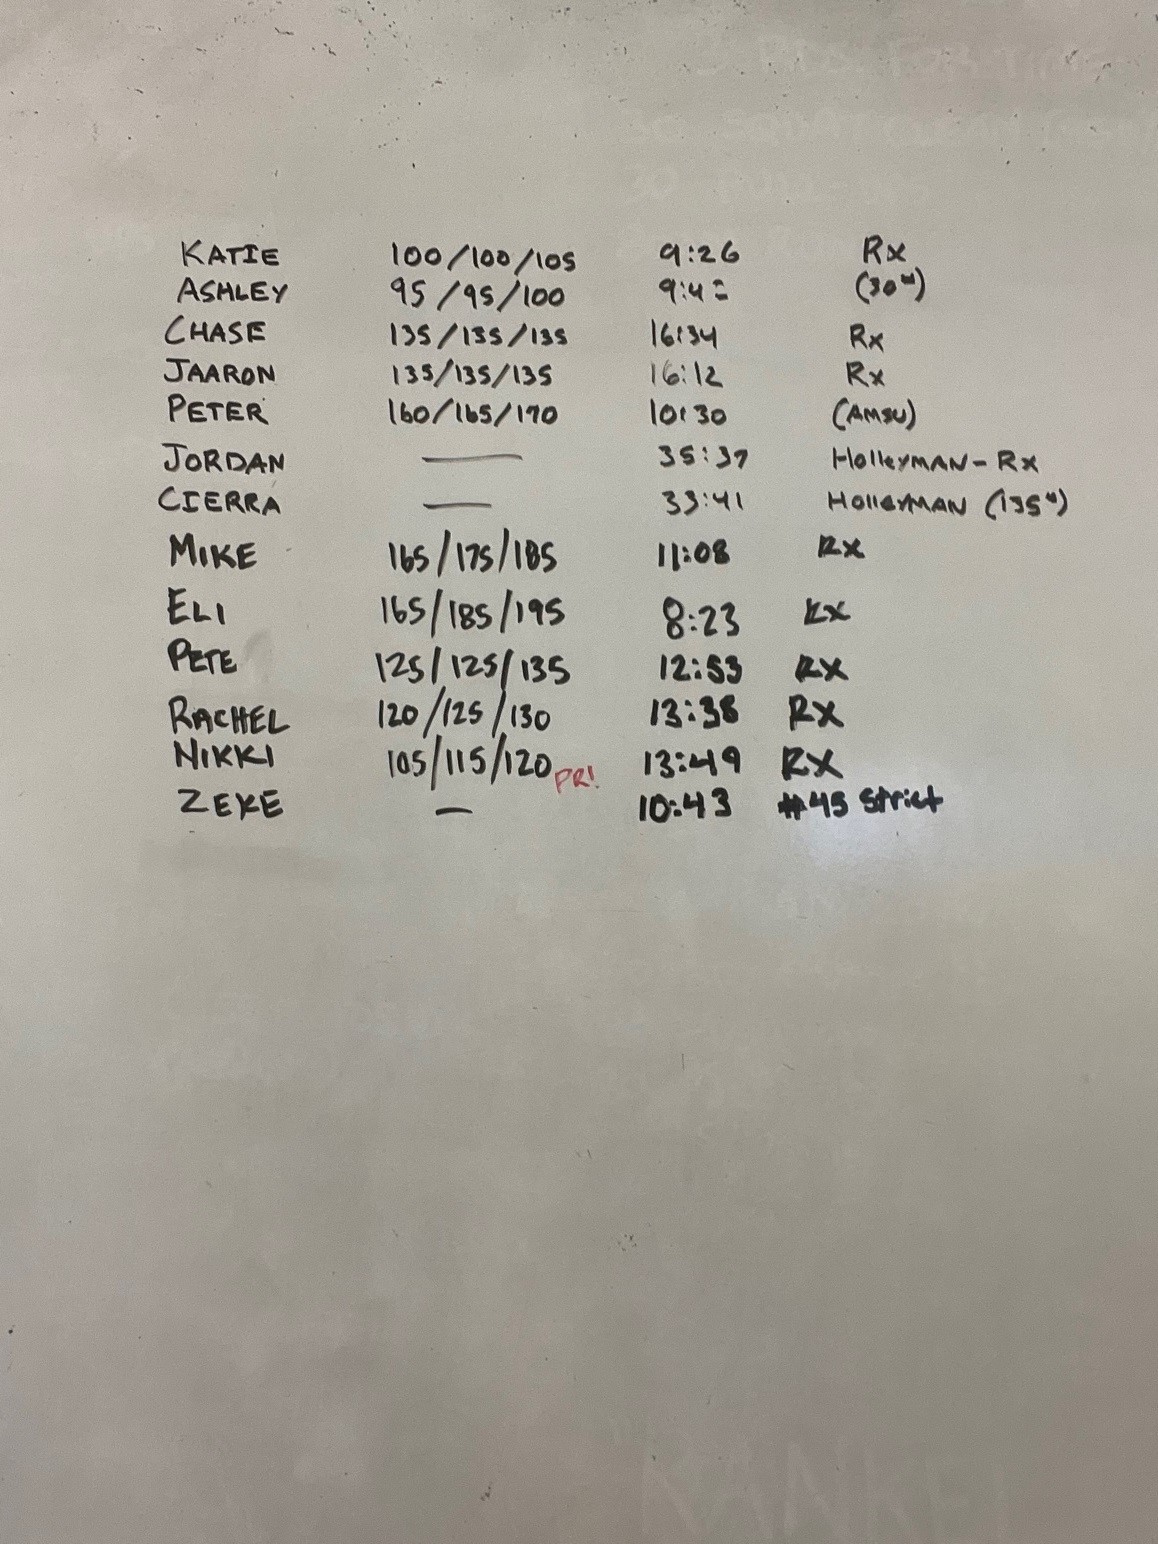 KATIE 100/100/105 9:26 Rx
ASHLEY 95/95/100 (30#)
CHASE 135/135/135 16:34 Rx
JAARON 135/135/135 16:12 Rx
PETER 160/165/170 10:30 (AMSU)
JORDAN — 35:37 HolleyMAN - Rx
CIERRA — 33:41 HolleyMAN (135#)
MIKE 165/175/185 11:08 RX
ELI 165/185/195 8:23 RX
PETE 125/125/135 12:53 RX
RACHEL 120/125/130 13:38 RX
NIKKI 105/115/120 PR! 13:49 RX
ZEKE — 10:43 #45 Strict